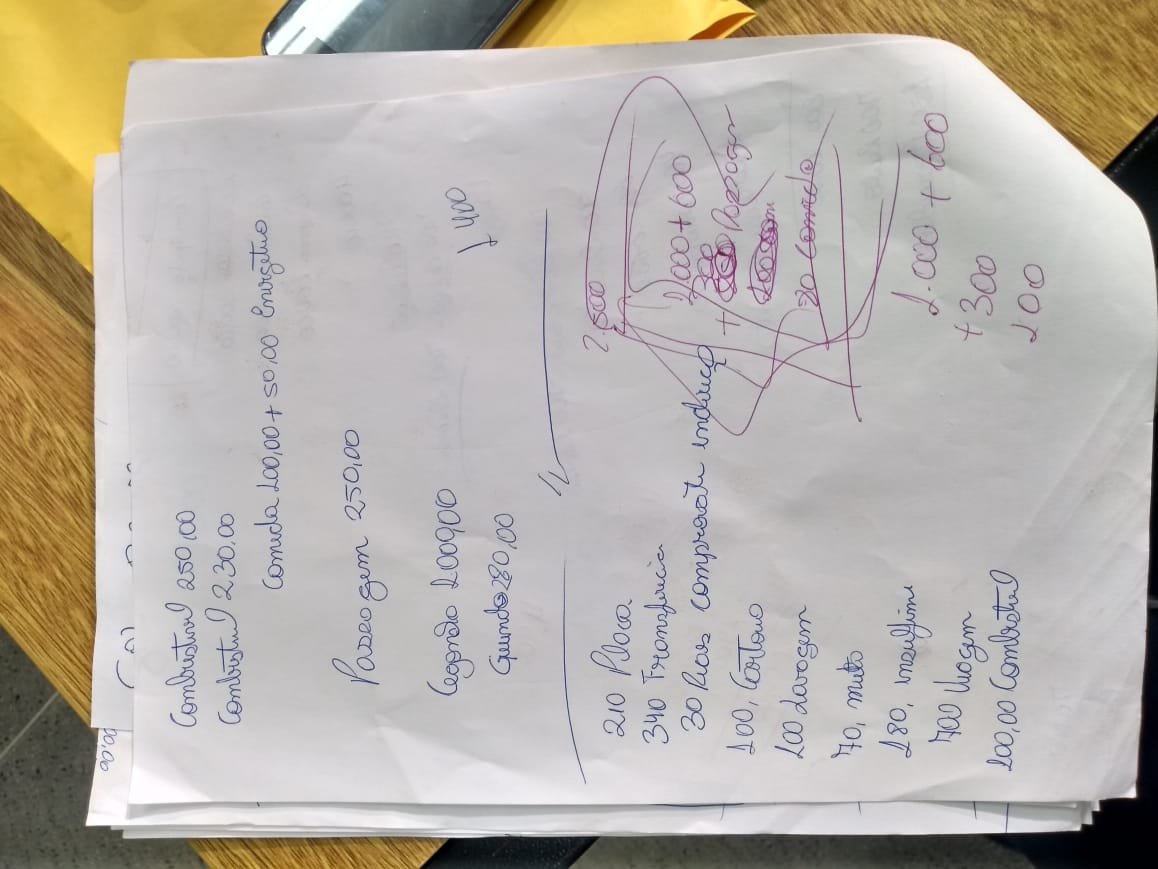 Combustivel 250,00
Combustivel 230.00
Comida 200,00 + 50,00 Energetico
Passagem 250,00
Cegonha 2.000,00
Guincho 280,00
1400
210 Placa
340 Transferencia
30 Reais comprovate indereço
100, Cartorio
200 Lavagem
70, multo
180, insulfilme
700 Viagem
200,00 Combustivel
2.500
2000 + 600
+ 300 Passagem
80 Comida
2.000 + 600
+ 300
200
00,00